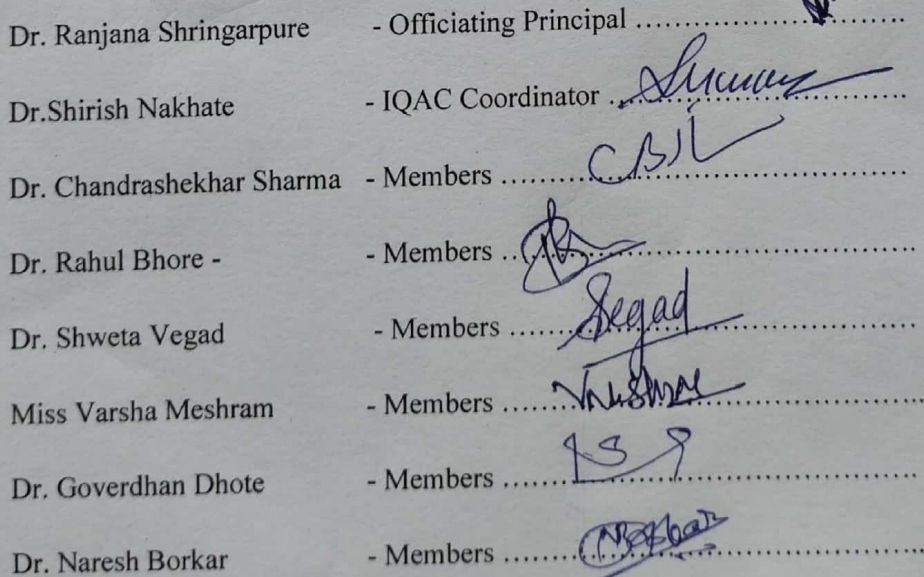 Dr. Ranjana Shringarpure - Officiating Principal ..............................
Dr.Shirish Nakhate - IQAC Coordinator ..............................
Dr. Chandrashekhar Sharma - Members ..............................
Dr. Rahul Bhore - - Members ..............................
Dr. Shweta Vegad - Members .............................. Segad
Miss Varsha Meshram - Members ..............................
Dr. Goverdhan Dhote - Members ..............................
Dr. Naresh Borkar - Members ..............................